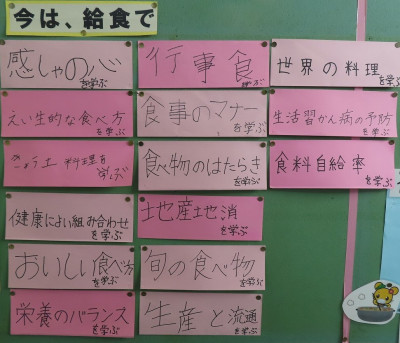 今は、給食で
感しゃの心
を学ぶ
行事食
を学ぶ
世界の料理
を学ぶ
えい生的な食べ方
を学ぶ
食事のマナー
を学ぶ
生活習かん病の予防
を学ぶ
きょう土料理を
学ぶ
食べ物のはたらき
を学ぶ
食料自給率
を学ぶ
健康によい組み合わせ
を学ぶ
地産地消
を学ぶ
おいしい食べ方
を学ぶ
旬の食べ物
を学ぶ
栄養のバランス
を学ぶ
生産と流通
を学ぶ